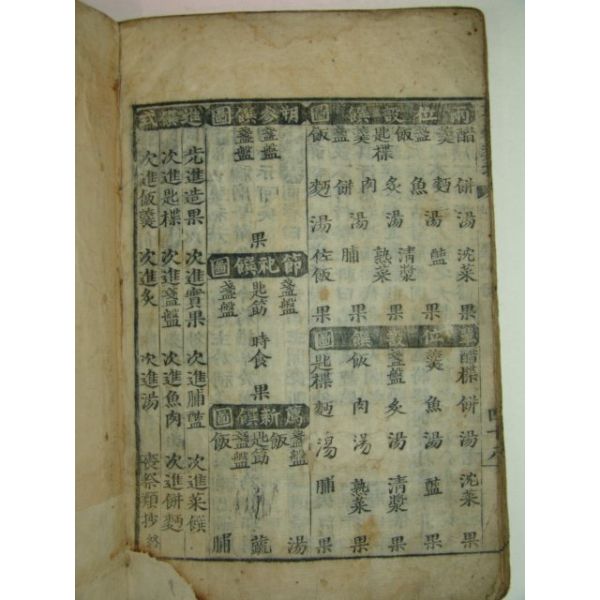 兩位設饌圖
醋 羹 盞 飯 匙楪 羹 盞 飯
餠 麵 魚 炙 肉 餠 麵
湯 湯 湯 湯 湯
沈菜 醢 清漿 熟菜 脯 佐飯
果 果 果 果 果 果
單位設饌圖
醋楪 羹 盞盤 飯 匙楪
餠 魚 炙 肉 麵
湯 湯 湯 湯 湯
沈菜 醢 清漿 熟菜 脯
果 果 果 果 果
朔參饌圖
盞盤 盞盤
果
節祀饌圖
盞盤 匙筯 盞盤
時食
果
薦新饌圖
盞盤 飯 匙筯 盞盤 飯
湯 蔬 脯
進饌式
先進造果 次進實果 次進脯醢 次進菜饌
次進匙楪 次進盞盤 次進魚肉 次進餠麵
次進飯羹 次進炙 次進湯 喪祭類抄終
四十八